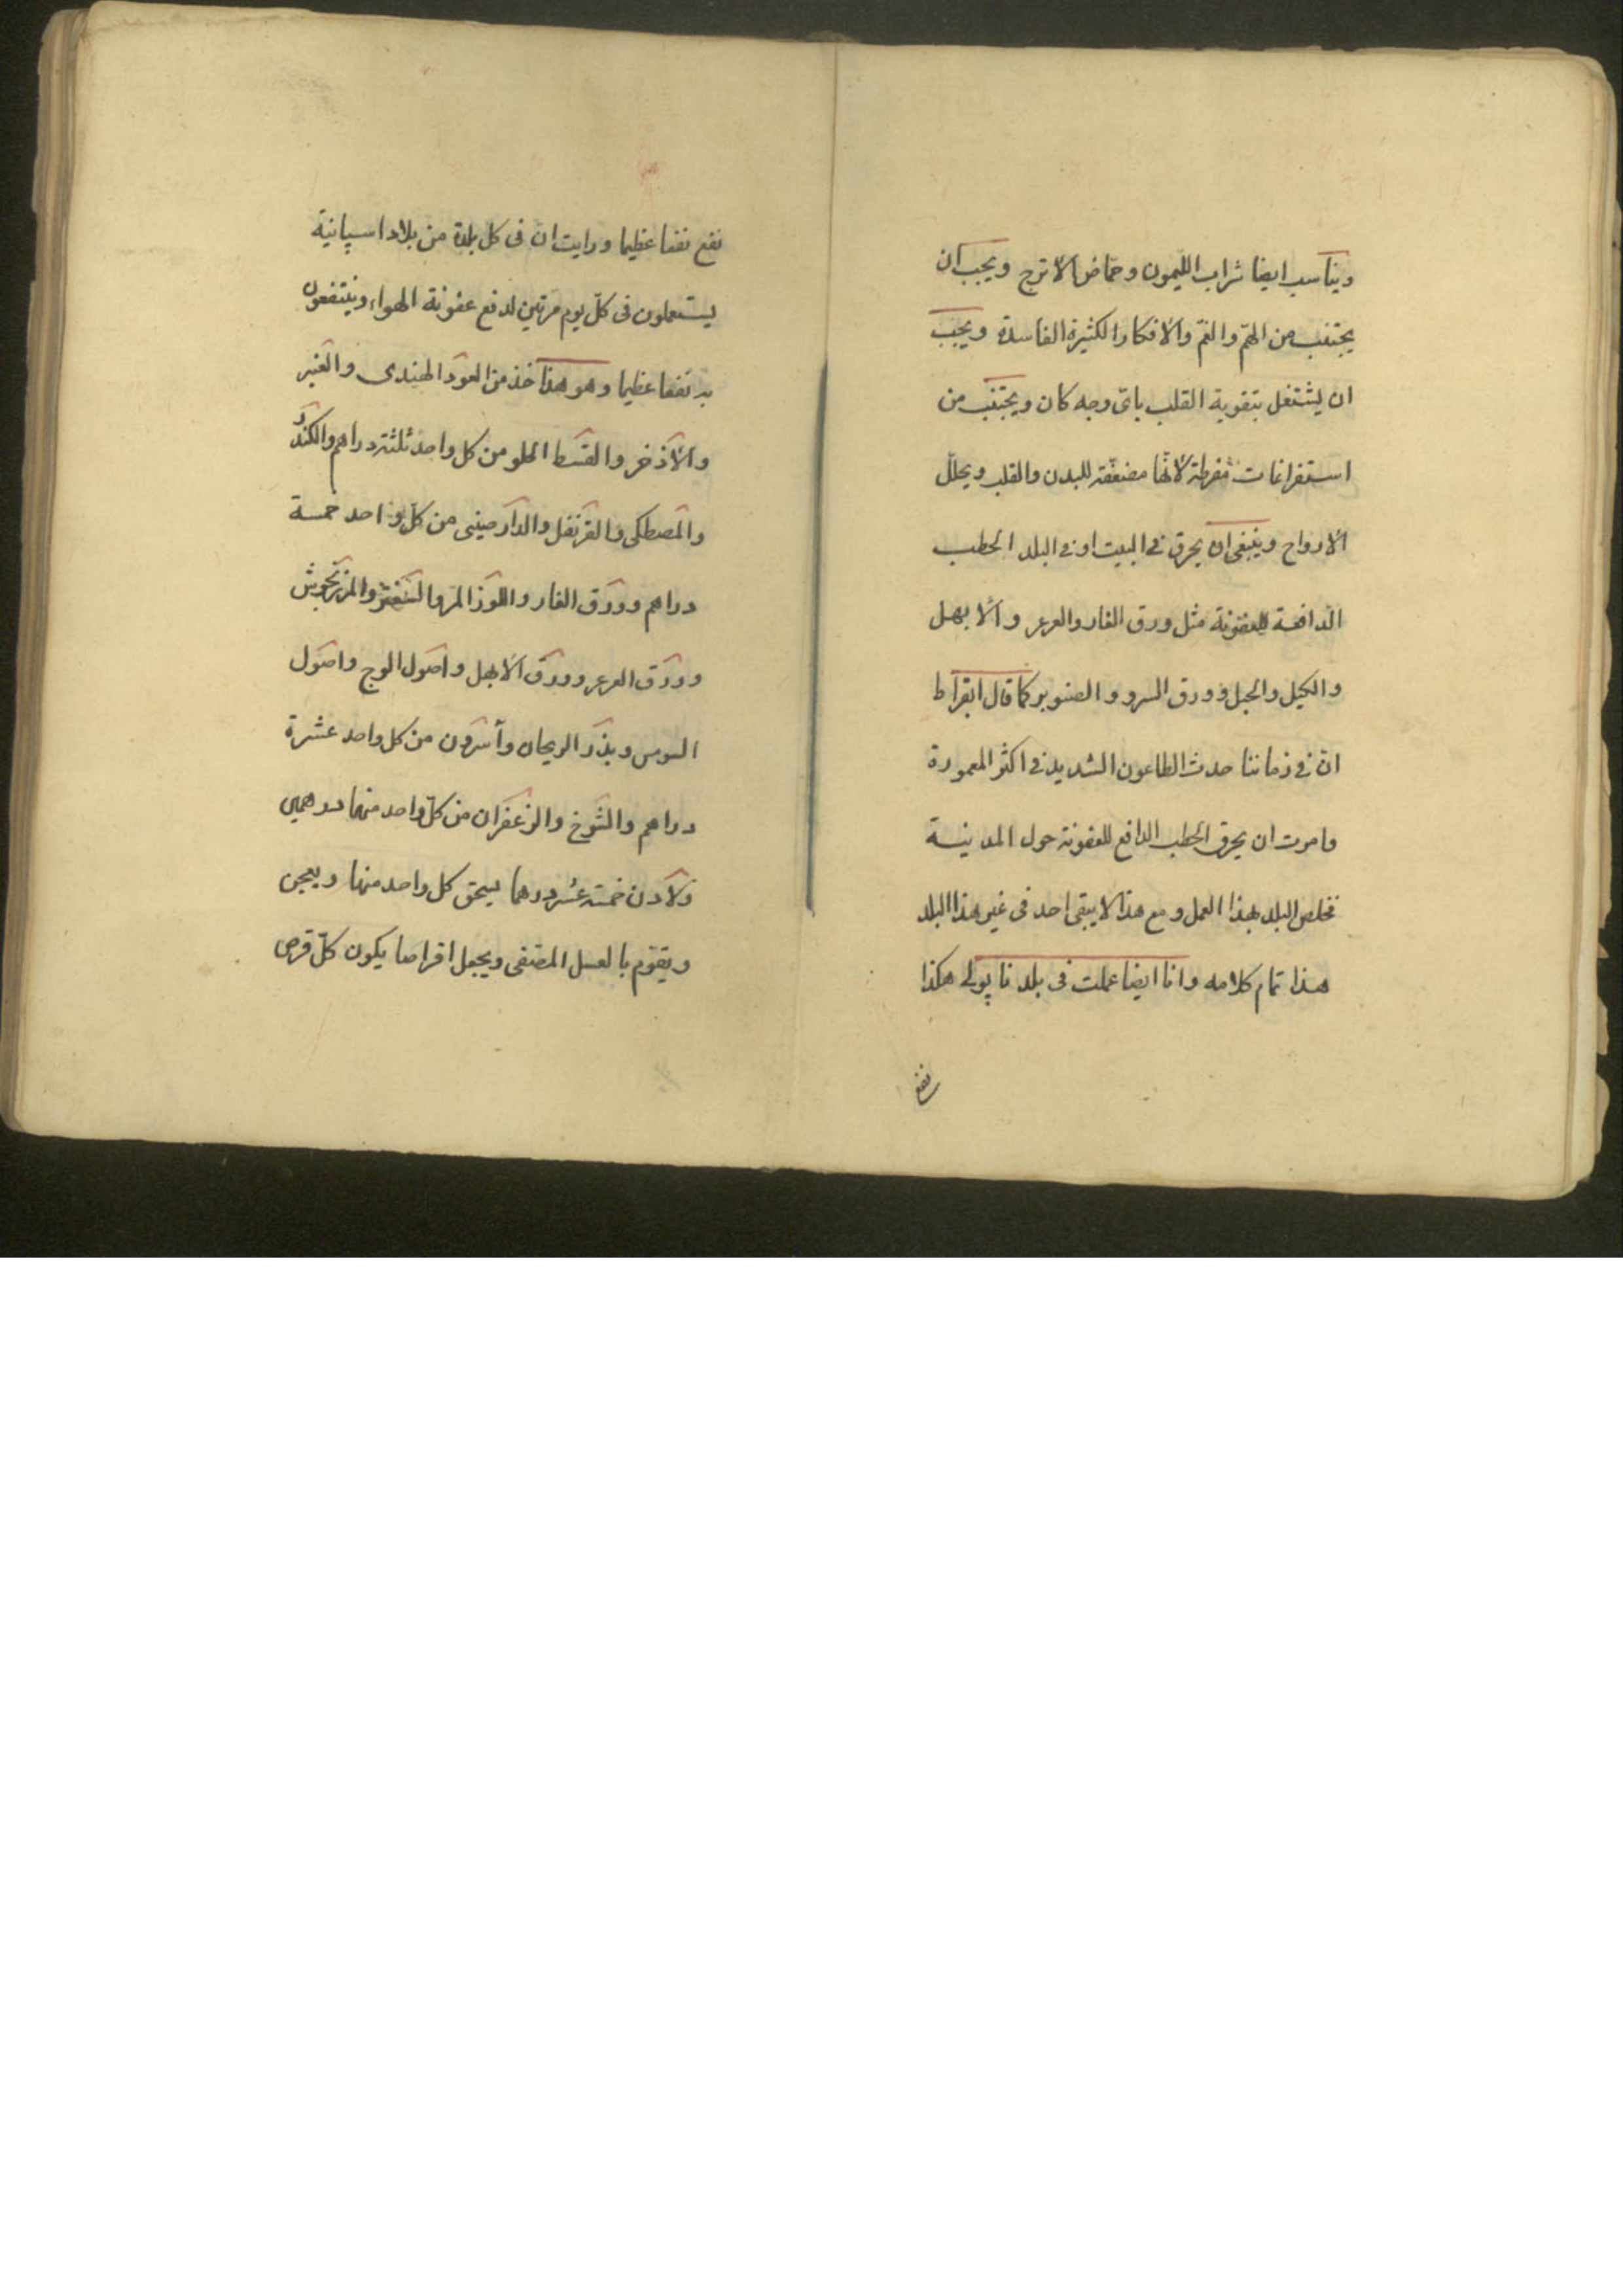 ويناسب ايضا شراب الليمون وحماض الاترج ويجب ان
يجتنب من الهمّ والغمّ والافكار الكثيرة الفاسدة ويجب
ان يشتغل بتقوية القلب باىّ وجه كان ويجتنب من
استفراغات مفرطة لانّها مضعفة للبدن والقلب ويحلّل
الارواح وينبغى ان يحرق فى البيت او فى البلد الحطب
الدافعة للعفونة مثل ورق الغار والعرعر والابهل
والكيل والجبل وورق السرو والصنوبر كما قال ابقراط
انّ فى زماننا حدث الطاعون الشديد فى اكثر المعمورة
وامرت ان يحرق الحطب الدافع للعفونة حول المدينة
فخلص البلد بهذا العمل ومع هذا لا يبقى احد فى غير هذا البلد
هذا تمام كلامه وانا ايضا عملت فى بلد ناپولى هكذا
نفع
نفع نفعا عظيما ورايت ان فى كل بلدة من بلاد اسپانية
يستعملون فى كلّ يوم مرّتين لدفع عفونة الهواء وينتفعون
به نفعا عظيما وهو هذا خذ من العود الهندى والعنبر
والاذخر والقسط الحلو من كل واحد ثلثة دراهم والكندر
والمصطكى والقرنفل والدارصينى من كلّ واحد خمسة
دراهم وورق الغار واللوز المر والمرزنجوش
وورق العرعر وورق الابهل واصول الوج واصول
السوس وبذر الريحان وآسارون من كل واحد عشرة
دراهم والزعفران من كلّ واحد منهما درهمين
ولادن خمسة عشر درهما يسحق كل واحد منها ويعجن
ويقوّم بالعسل المصفى ويجعل اقراصا يكون كلّ قرص